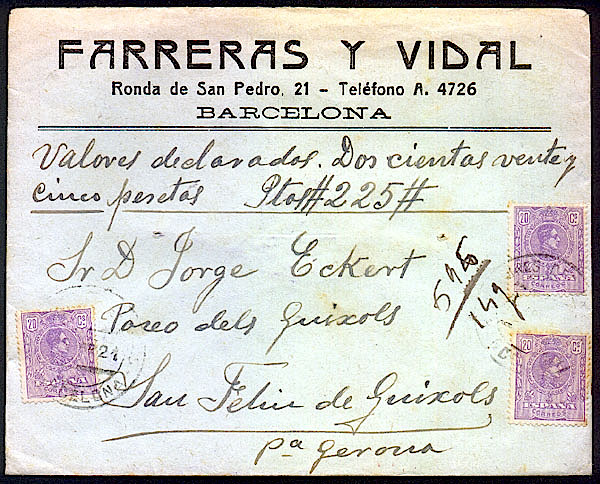 FARRERAS Y VIDAL
Ronda de San Pedro, 21 - Teléfono A. 4726
BARCELONA
Valores declarados. Dos cientas vente y
cinco pesetas Ptas #225#
Sr D Jorge Eckert
Paseo dels Guixols
San Feliu de Guixols
pa Gerona
20 Cs
ESPAÑA
CORREOS
20 Cs
ESPAÑA
CORREOS
20 Cs
ESPAÑA
CORREOS